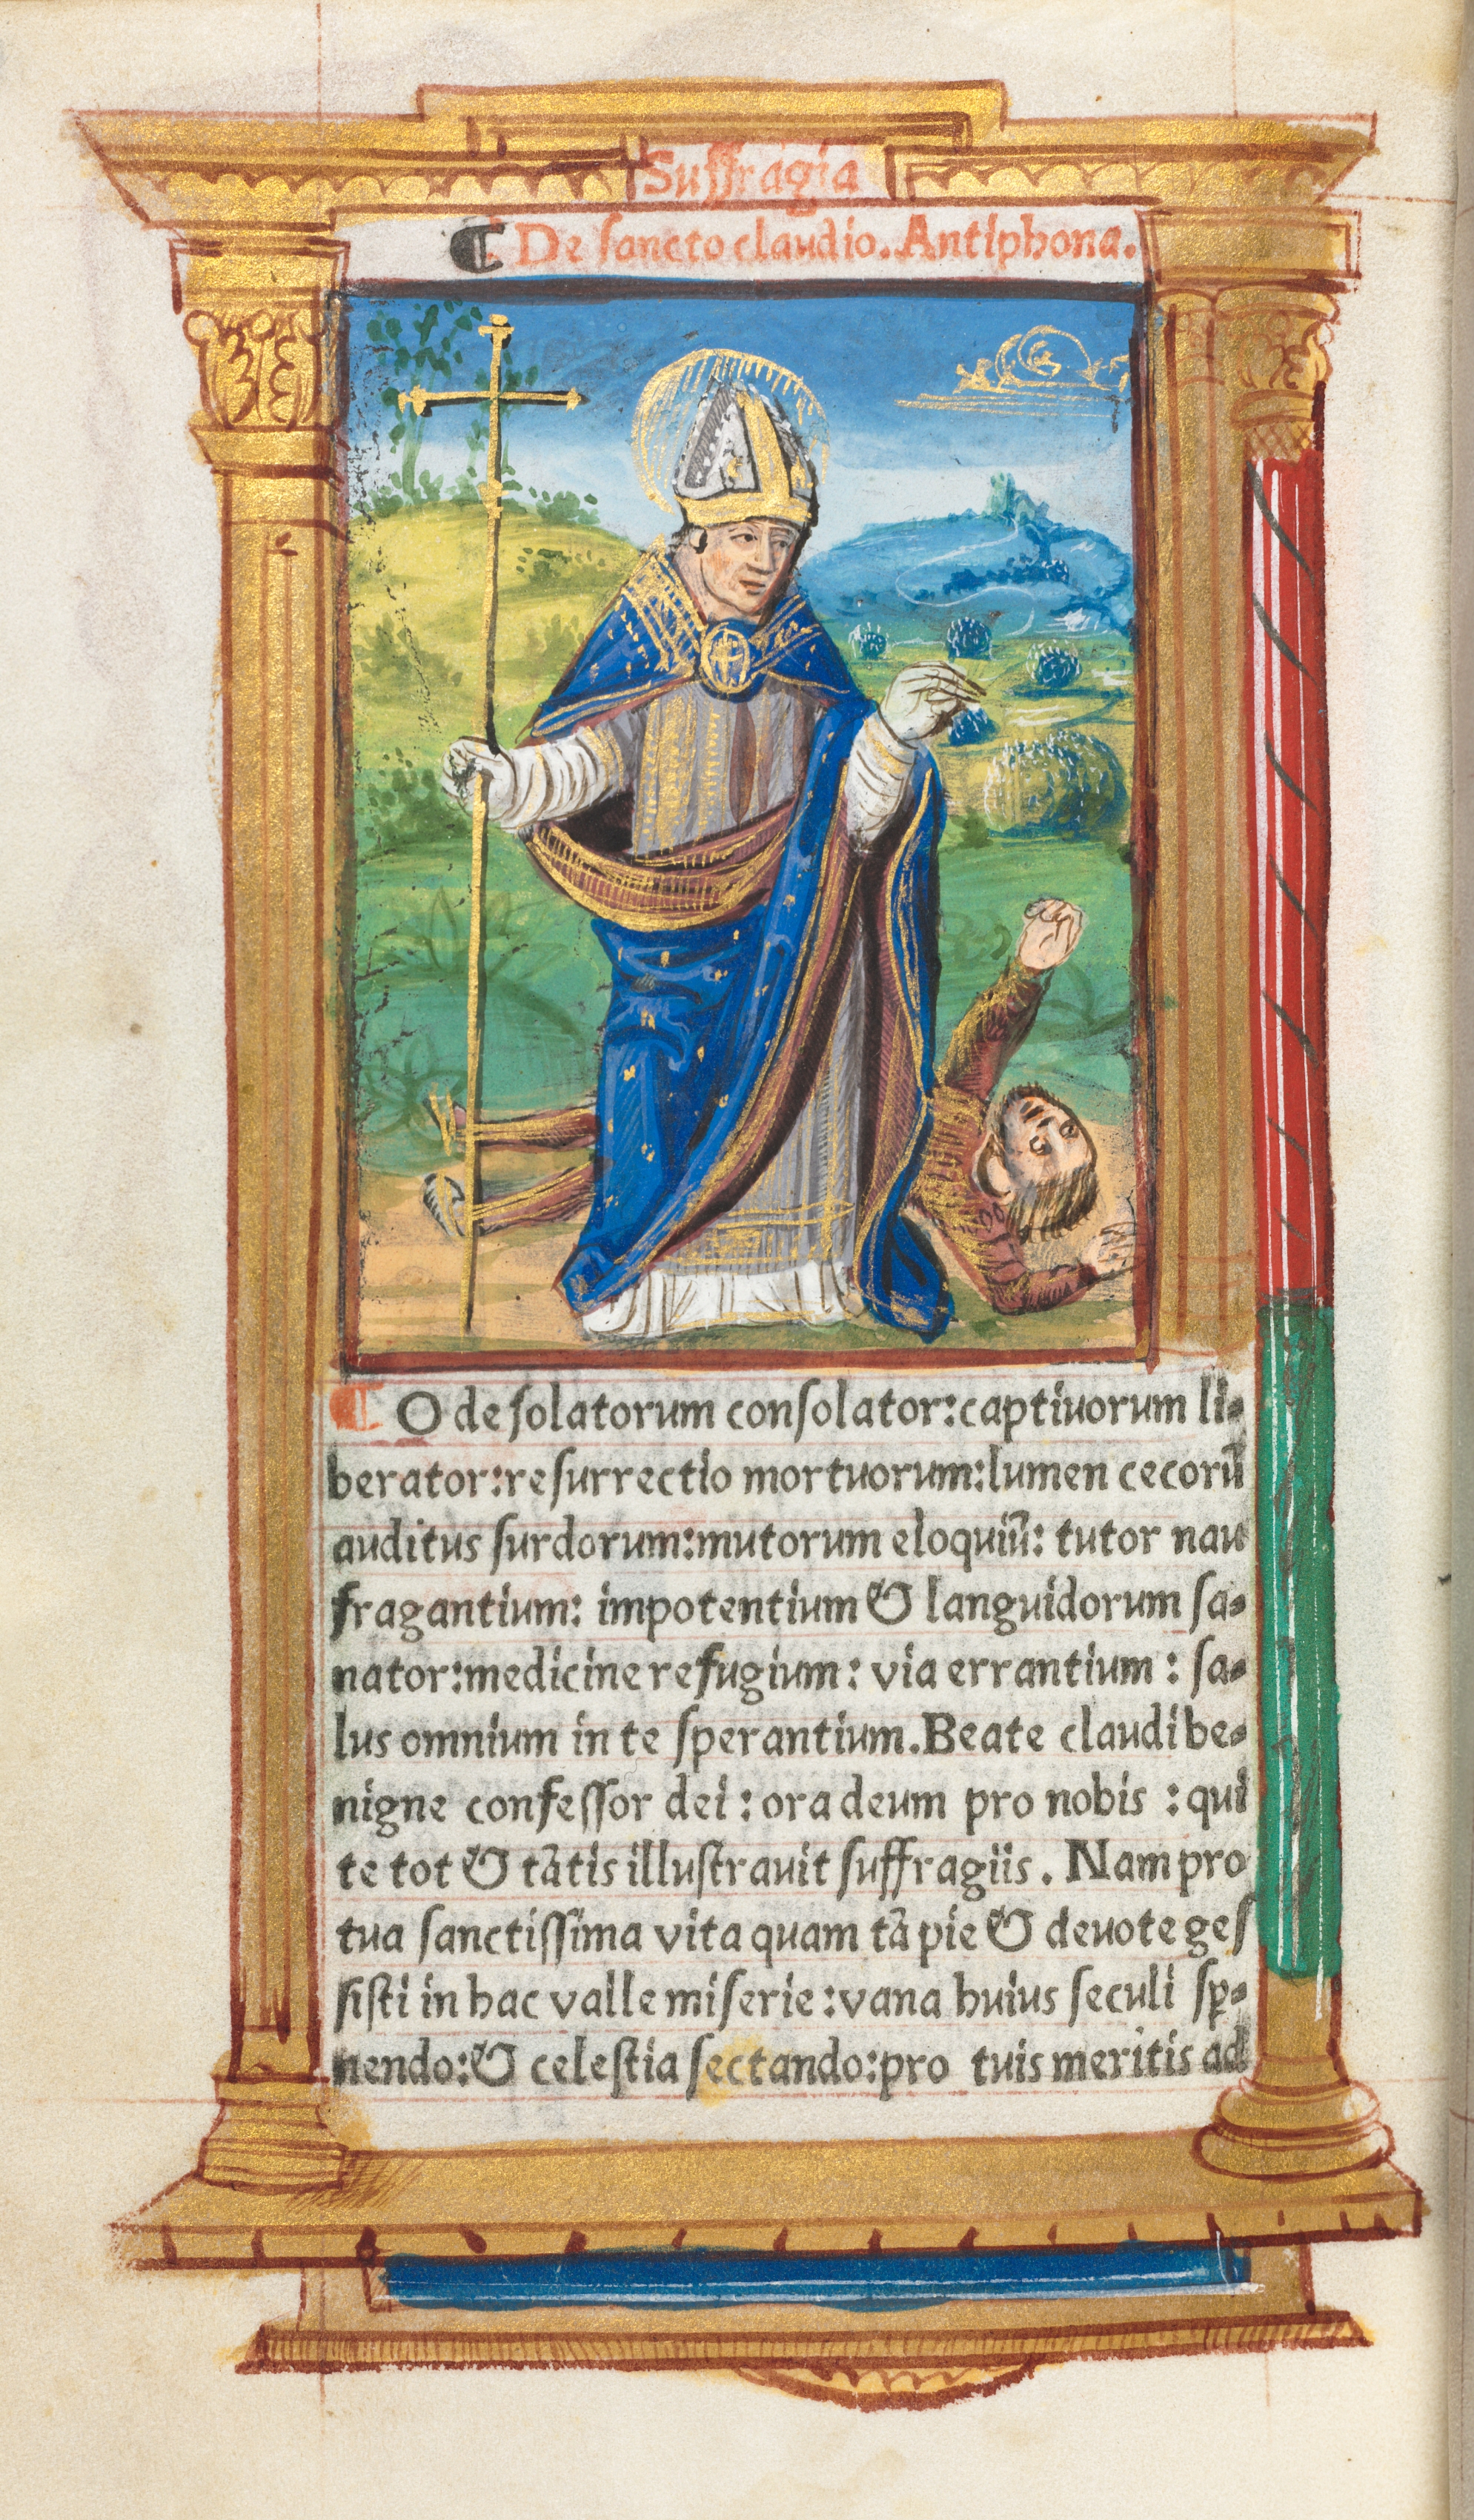 Suffragia
¶ De sancto claudio. Antiphona.
¶ O desolatorum consolator:captiuorum li-
berator:resurrectio mortuorum:lumen cecorũ
auditus surdorum:mutorum eloquiũ: tutor nau
fragantium: impotentium & languidorum sa-
nator:medicine refugium: via errantium : sa-
lus omnium in te sperantium.Beate claudi be-
nigne confessor dei : ora deum pro nobis : qui
te tot & tãtis illustrauit suffragiis . Nam pro
tua sanctissima vita quam tã pie & deuote ges
sisti in hac valle miserie:vana huius seculi sp-
nendo:& celestia sectando:pro tuis meritis ad